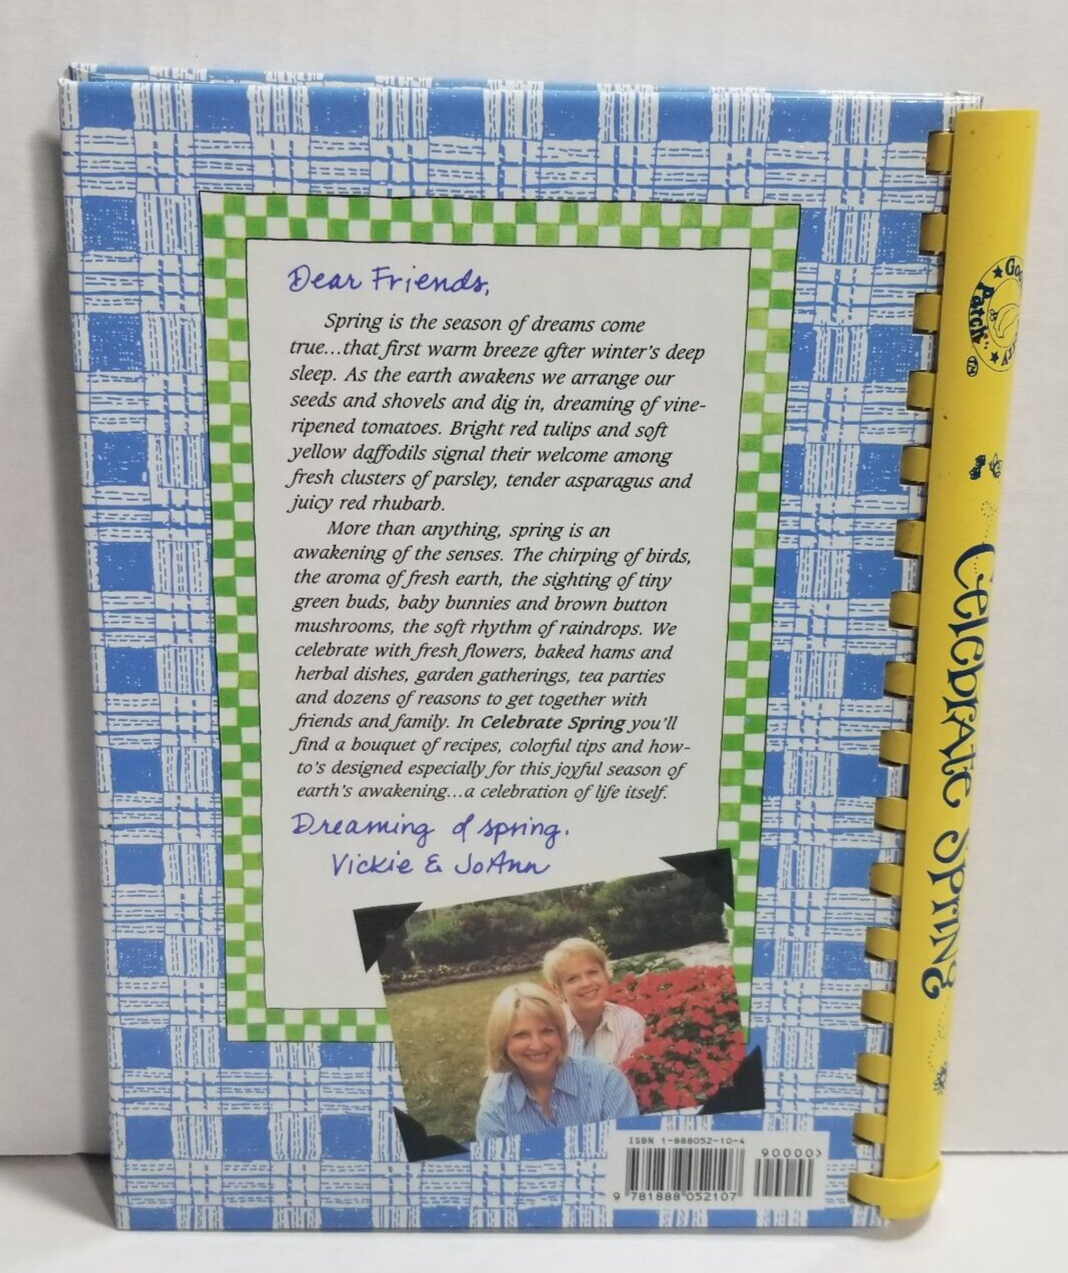 Dear Friends,
Spring is the season of dreams come
true...that first warm breeze after winter's deep
sleep. As the earth awakens we arrange our
seeds and shovels and dig in, dreaming of vine-
ripened tomatoes. Bright red tulips and soft
yellow daffodils signal their welcome among
fresh clusters of parsley, tender asparagus and
juicy red rhubarb.
More than anything, spring is an
awakening of the senses. The chirping of birds,
the aroma of fresh earth, the sighting of tiny
green buds, baby bunnies and brown button
mushrooms, the soft rhythm of raindrops. We
celebrate with fresh flowers, baked hams and
herbal dishes, garden gatherings, tea parties
and dozens of reasons to get together with
friends and family. In Celebrate Spring you'll
find a bouquet of recipes, colorful tips and how-
to's designed especially for this joyful season of
earth's awakening...a celebration of life itself.
Dreaming of spring,
Vickie & JoAnn
ISBN 1-888052-10-4
90000>
9 781888 052107
Patch TM
Celebrate Spring